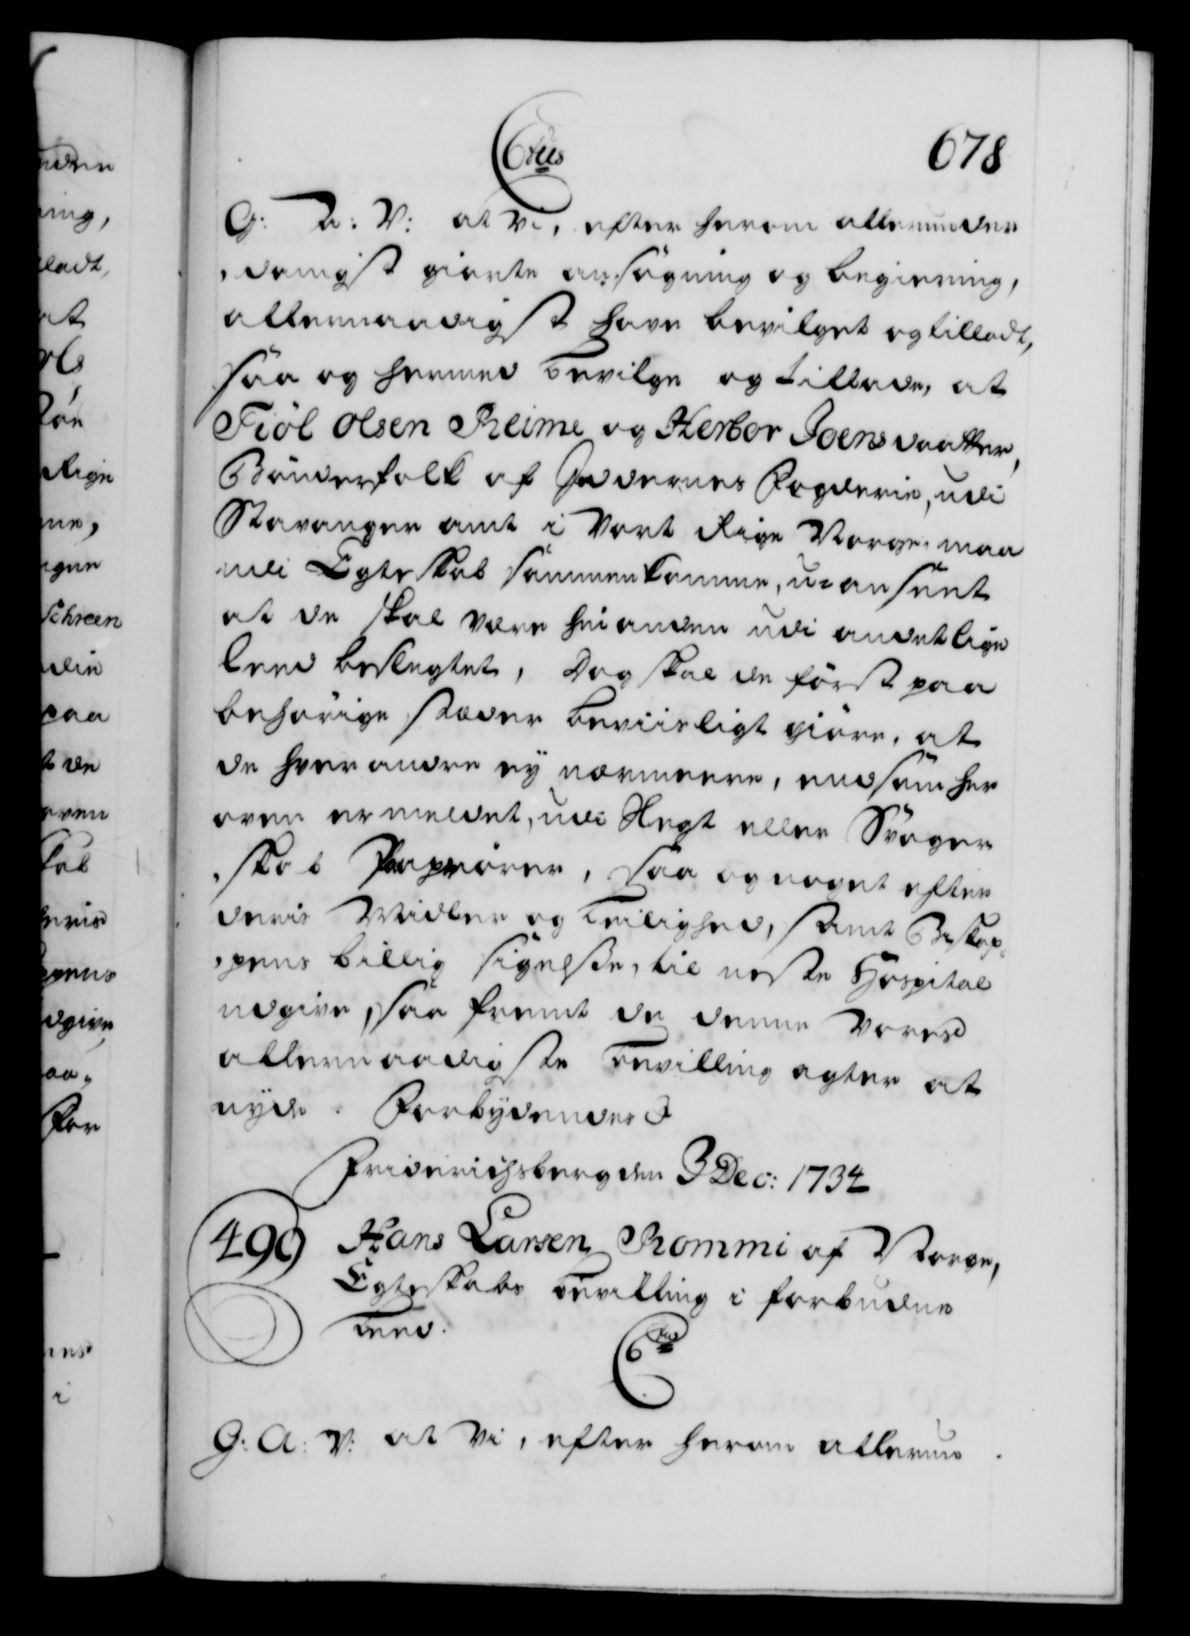 678
C6tus
G: A: V: at vi, efter herom allerunder
danigst giorte ansögning og begiering,
allernaadigst have bevilget og tilladt,
saa og hermed bevilge og tillade, at
Tiöl Olsen Reime og Herbor Joensdaatter,
Bönderfolk af Jedderens Fogderie, udi
Stavanger amt i Vort Rige Norge, maa
udi Egteskab sammenkomme, u-anseet
at de skal være hinanden udi andet lige
leed beslegtet, Dog skal de först paa
behörige stæder beviisligt giöre, at
de hverandre ey nærmeere, end som her
oven er meldet, udi Slegt eller Svoger
skab paarörer, saa og noget efter
deris Midler og Leilighed, samt Biskop
pens billig sigelse, til neste Hospital
udgive, saa fremt de denne Vores
allernaadigste bevilling agter at
nyde. Forbydendes
Friderichsberg den 3 Dec: 1734
499 Hans Larsen Rommi af Norge,
Egteskabs bevilling i forbudne
Leed.
C6tus
G: A: V: at Vi, efter herom allerun